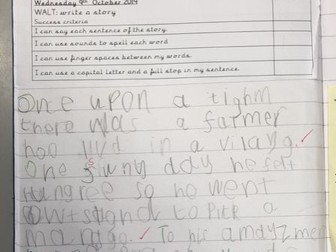 Wednesday 9th October 2019
WALT: write a story
Success criteria
I can say each sentence of the story.
I can use sounds to spell each word
I can use finger spaces between my words.
I can use a capital letter and a full stop in my sentence.
Once upon a tighm
there was a farmer
hoo livd in a vilag.
One suny day he felt
hungree so he went
owtsighd to pick a
To his amayzmen